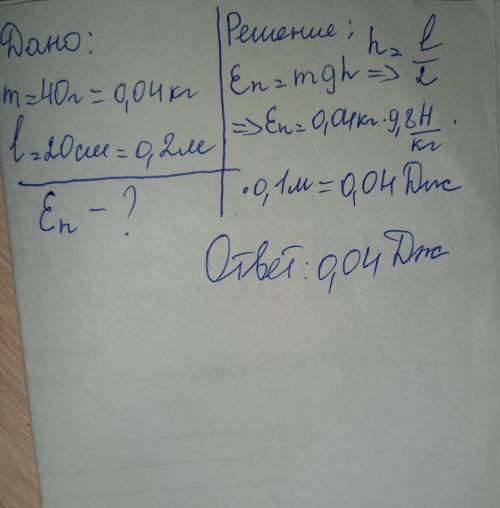 Дано:
m=40г=0,04кг
l=20см=0,2м
Eп-?
Решение; h=l/2
Eп=mgh=>
=>Eп=0,04кг·9,8Н/кг·
·0,1м=0,04Дж
Ответ:0,04Дж